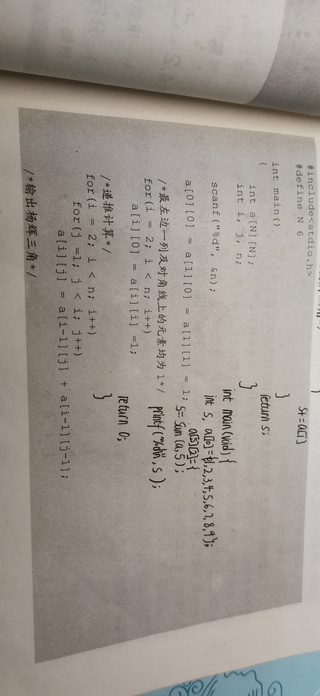 #include<stdio.h>
#define N 6
int main()
{
int a[N][N];
int i, j, n;
scanf("%d", &n);
a[0][0] = a[1][0] = a[1][1] = 1;
/*最左边一列及对角线上的元素均为1*/
for(i = 2; i < n; i++)
a[i][0] = a[i][i] =1;
/*递推计算*/
for(i = 2; i < n; i++)
for(j =1; j < i; j++)
a[i][j] = a[i-1][j] + a[i-1][j-1];
/*输出杨辉三角*/
S+=a[i]
}
return s;
}
int main(void){
int s, a[]={1,2,3,4,5,6,7,8,9};
a[3][2]={
s=sum(a,5);
printf("%d\n",s);
return 0;
}